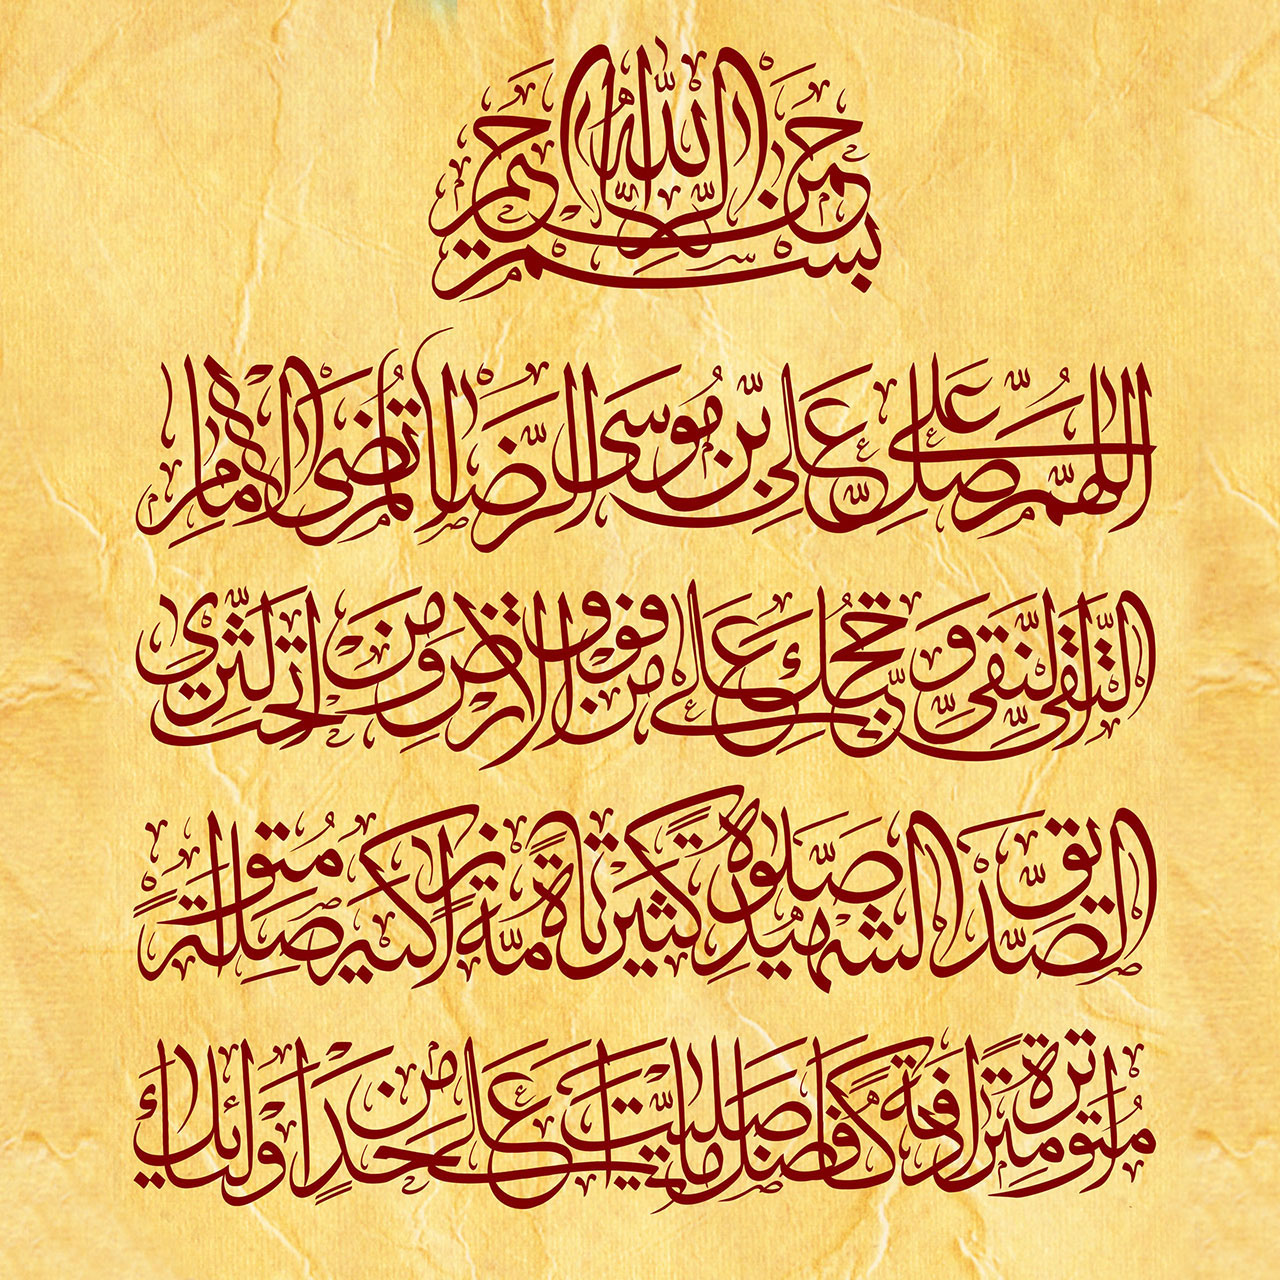 بسم الله الرحمن الرحيم
اللهم صل على علي بن موسى الرضا المرتضى الإمام
التقي النقي و حجتك على من فوق الأرض و من تحت الثرى
الصديق الشهيد صلوة كثيرة تامة زاكية متواصلة
متواترة مترادفة كأفضل ما صليت على أحد من أوليائك